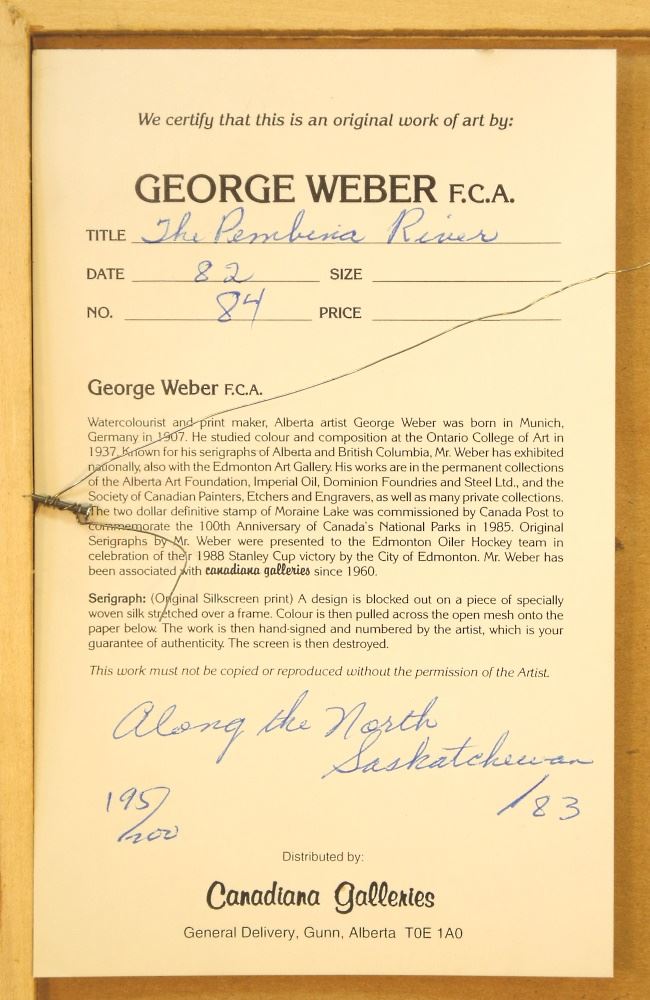 We certify that this is an original work of art by:
GEORGE WEBER F.C.A.
TITLE The Pembina River
DATE 82 SIZE
NO. 84 PRICE
George Weber F.C.A.
Watercolourist and print maker, Alberta artist George Weber was born in Munich,
Germany in 1907. He studied colour and composition at the Ontario College of Art in
1937. Known for his serigraphs of Alberta and British Columbia, Mr. Weber has exhibited
nationally, also with the Edmonton Art Gallery. His works are in the permanent collections
of the Alberta Art Foundation, Imperial Oil, Dominion Foundries and Steel Ltd., and the
Society of Canadian Painters, Etchers and Engravers, as well as many private collections.
The two dollar definitive stamp of Moraine Lake was commissioned by Canada Post to
commemorate the 100th Anniversary of Canada's National Parks in 1985. Original
Serigraphs by Mr. Weber were presented to the Edmonton Oiler Hockey team in
celebration of their 1988 Stanley Cup victory by the City of Edmonton. Mr. Weber has
been associated with canadiana galleries since 1960.
Serigraph: (Original Silkscreen print) A design is blocked out on a piece of specially
woven silk stretched over a frame. Colour is then pulled across the open mesh onto the
paper below. The work is then hand-signed and numbered by the artist, which is your
guarantee of authenticity. The screen is then destroyed.
This work must not be copied or reproduced without the permission of the Artist.
Along the North
Saskatchewan
195/200 /83
Distributed by:
Canadiana Galleries
General Delivery, Gunn, Alberta T0E 1A0